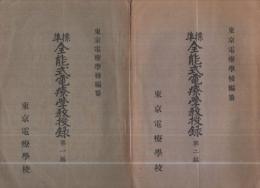 東京電療學校編纂
標準
全能式電療學教授録
第一編
東京電療學校
東京電療學校編纂
標準
全能式電療學教授録
第二編
東京電療學校